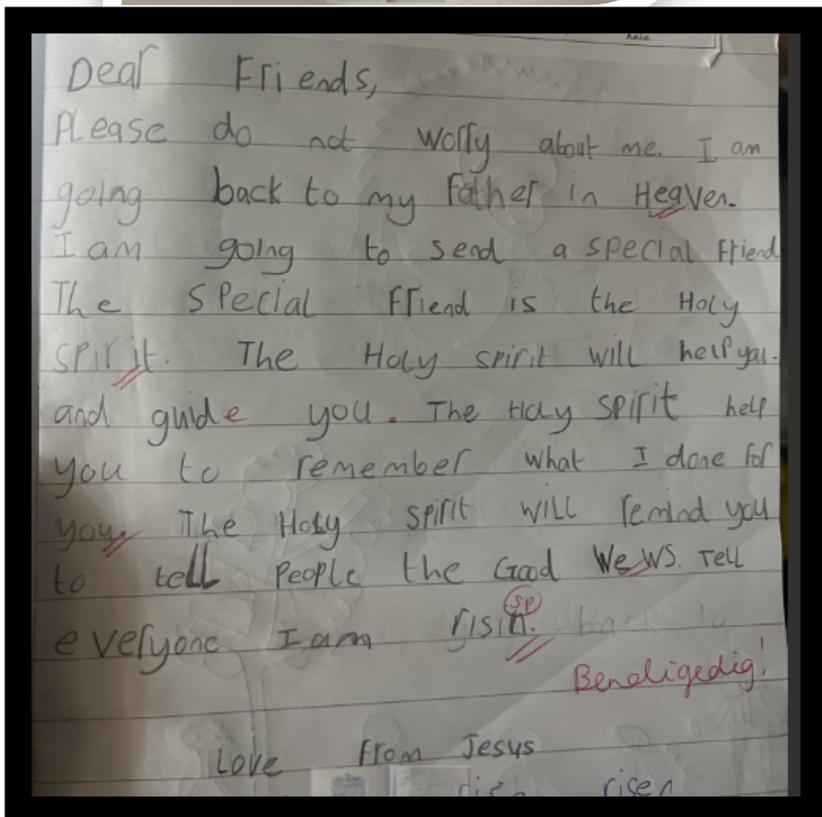 Dear Friends,
Please do not worry about me. I am
going back to my Father in Heaven.
I am going to send a special Friend
The special Friend is the Holy
spirit. The Holy spirit will help you.
and guide you. The Holy spirit help
you to remember what I done for
you, The Holy spirit will remind you
to tell People the Good WeWS. Tell
sp
everyone I am risin. back to
Bendigedig!
Love From Jesus
risen risen